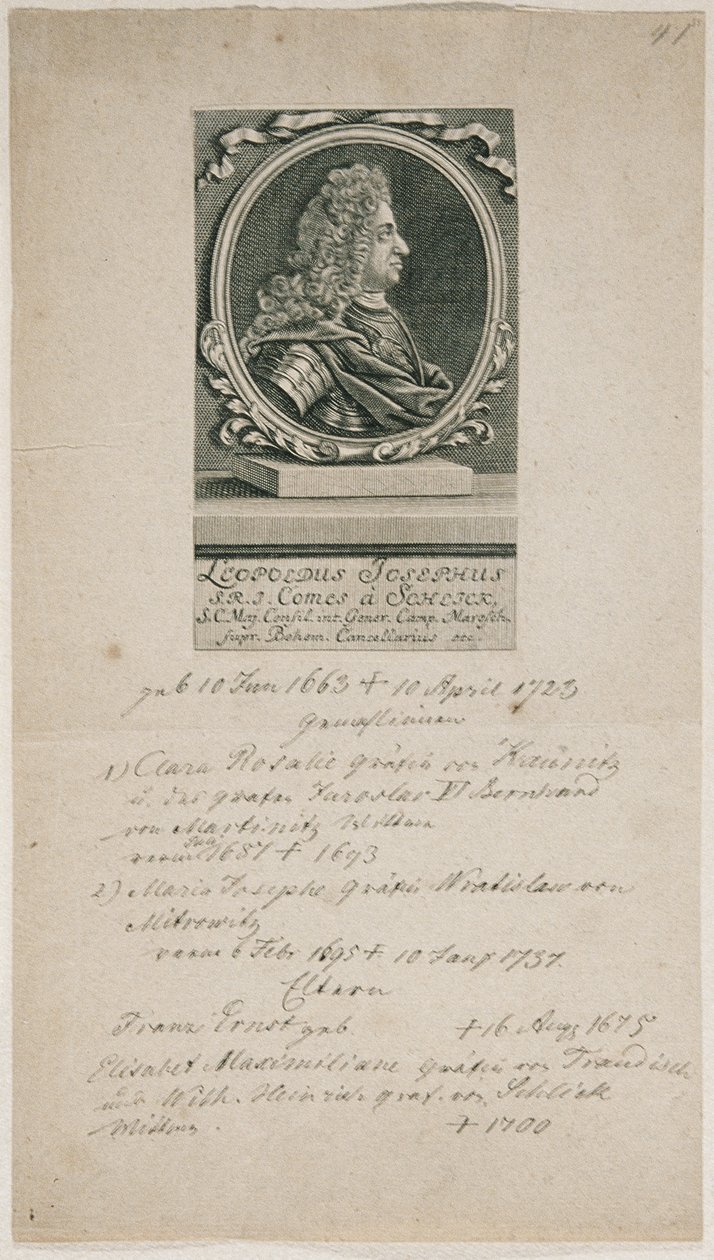 41
LEOPOLDUS JOSEPHUS
S.R.I. Comes à SCHLICK,
S.C.Maj. Consil. int. Gener. Camp. Maresch.
supr. Bohem. Cancellarius etc.
geb 10 Jun 1663 † 10 April 1723
Gemahlinnen
1) Clara Rosalie Gräfin von Kaunitz
u. des Grafen Jaroslav VI Bernhard
von Martinitz Wittwe
verm 1687 † 1693
2) Maria Josepha Gräfin Wratislaw von
Mitrowitz
verm 6 Febr 1695 † 10 1737.
Eltern
Franz Ernst geb. † 16 Aug 1675
Elisabet Maximiliane Gräfin von
und With. Heinrich Graf. von Schlick
Wittwe. † 1700